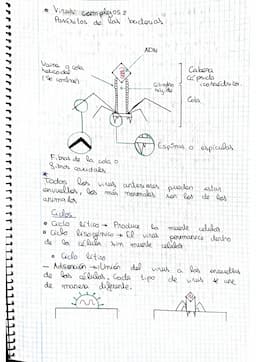 • Virus complejos:
Parásitos de las bacterias.
ADN
Vaina y cola
helicoidal
(se contrae)
Cabeza
Cápsida
icosaédrica.
Cilindro
rígido
Cola.
Espinas o espículas
Fibras de la cola o
fibras caudales
* Todos los virus anteriores pueden estar
envueltos, los más normales son los de los
animales
Ciclos
• Ciclo lítico → Produce la muerte celular
• Ciclo lisogénico → El virus permanece dentro
de la célula sin muerte celular
• Ciclo lítico
— Adsorción → Unión del virus a las envueltas
de las células. Cada tipo de virus se une
de manera diferente.